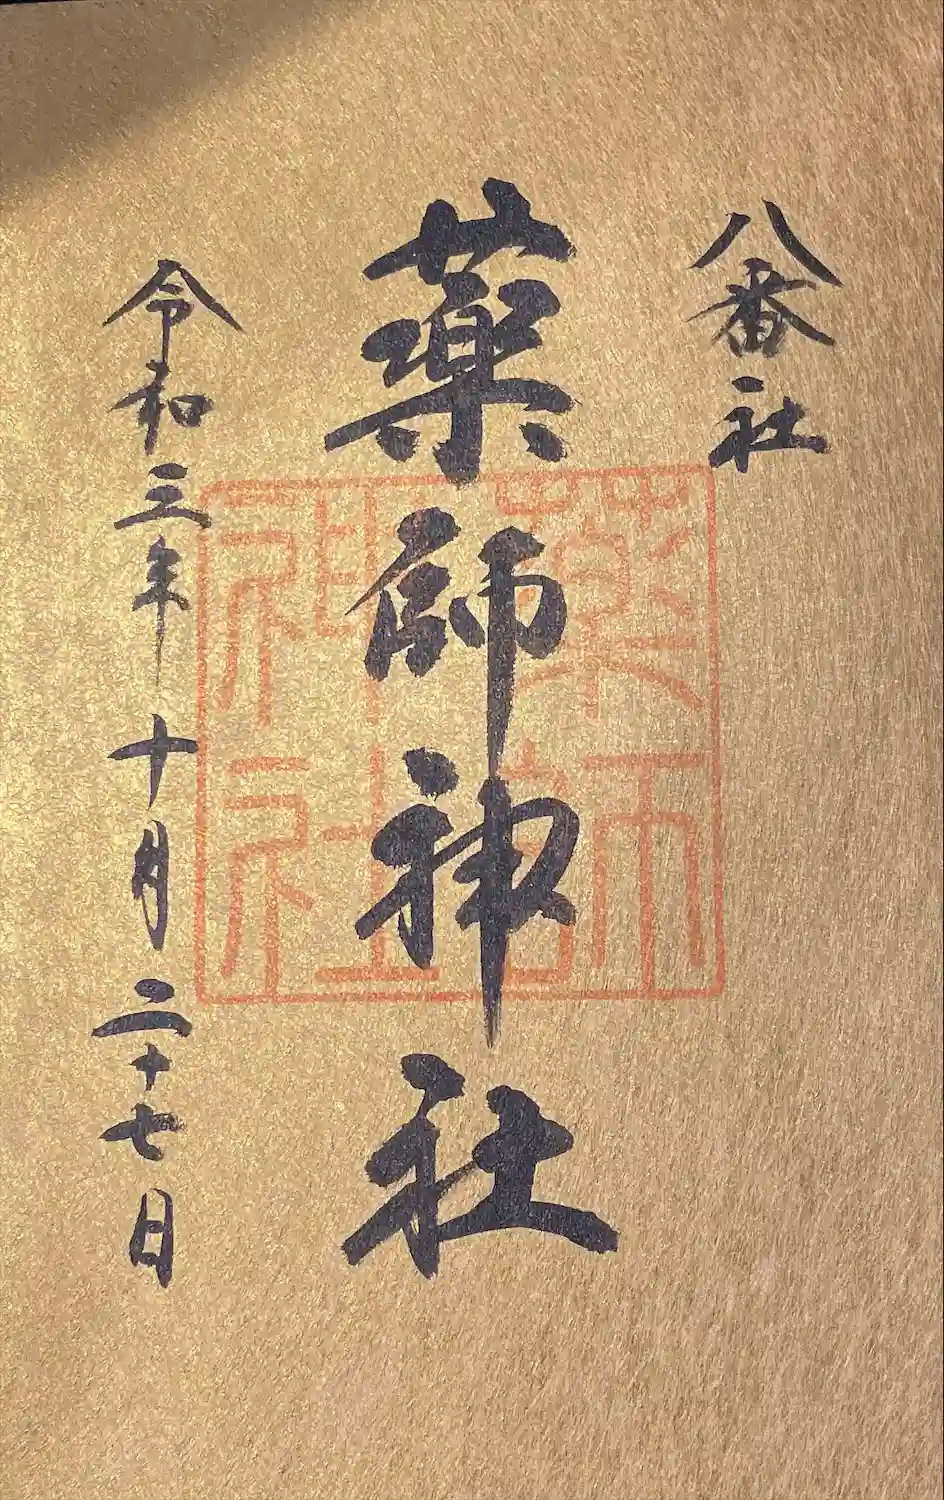 八番社
薬師神社
令和三年十月二十七日
薬師
神社